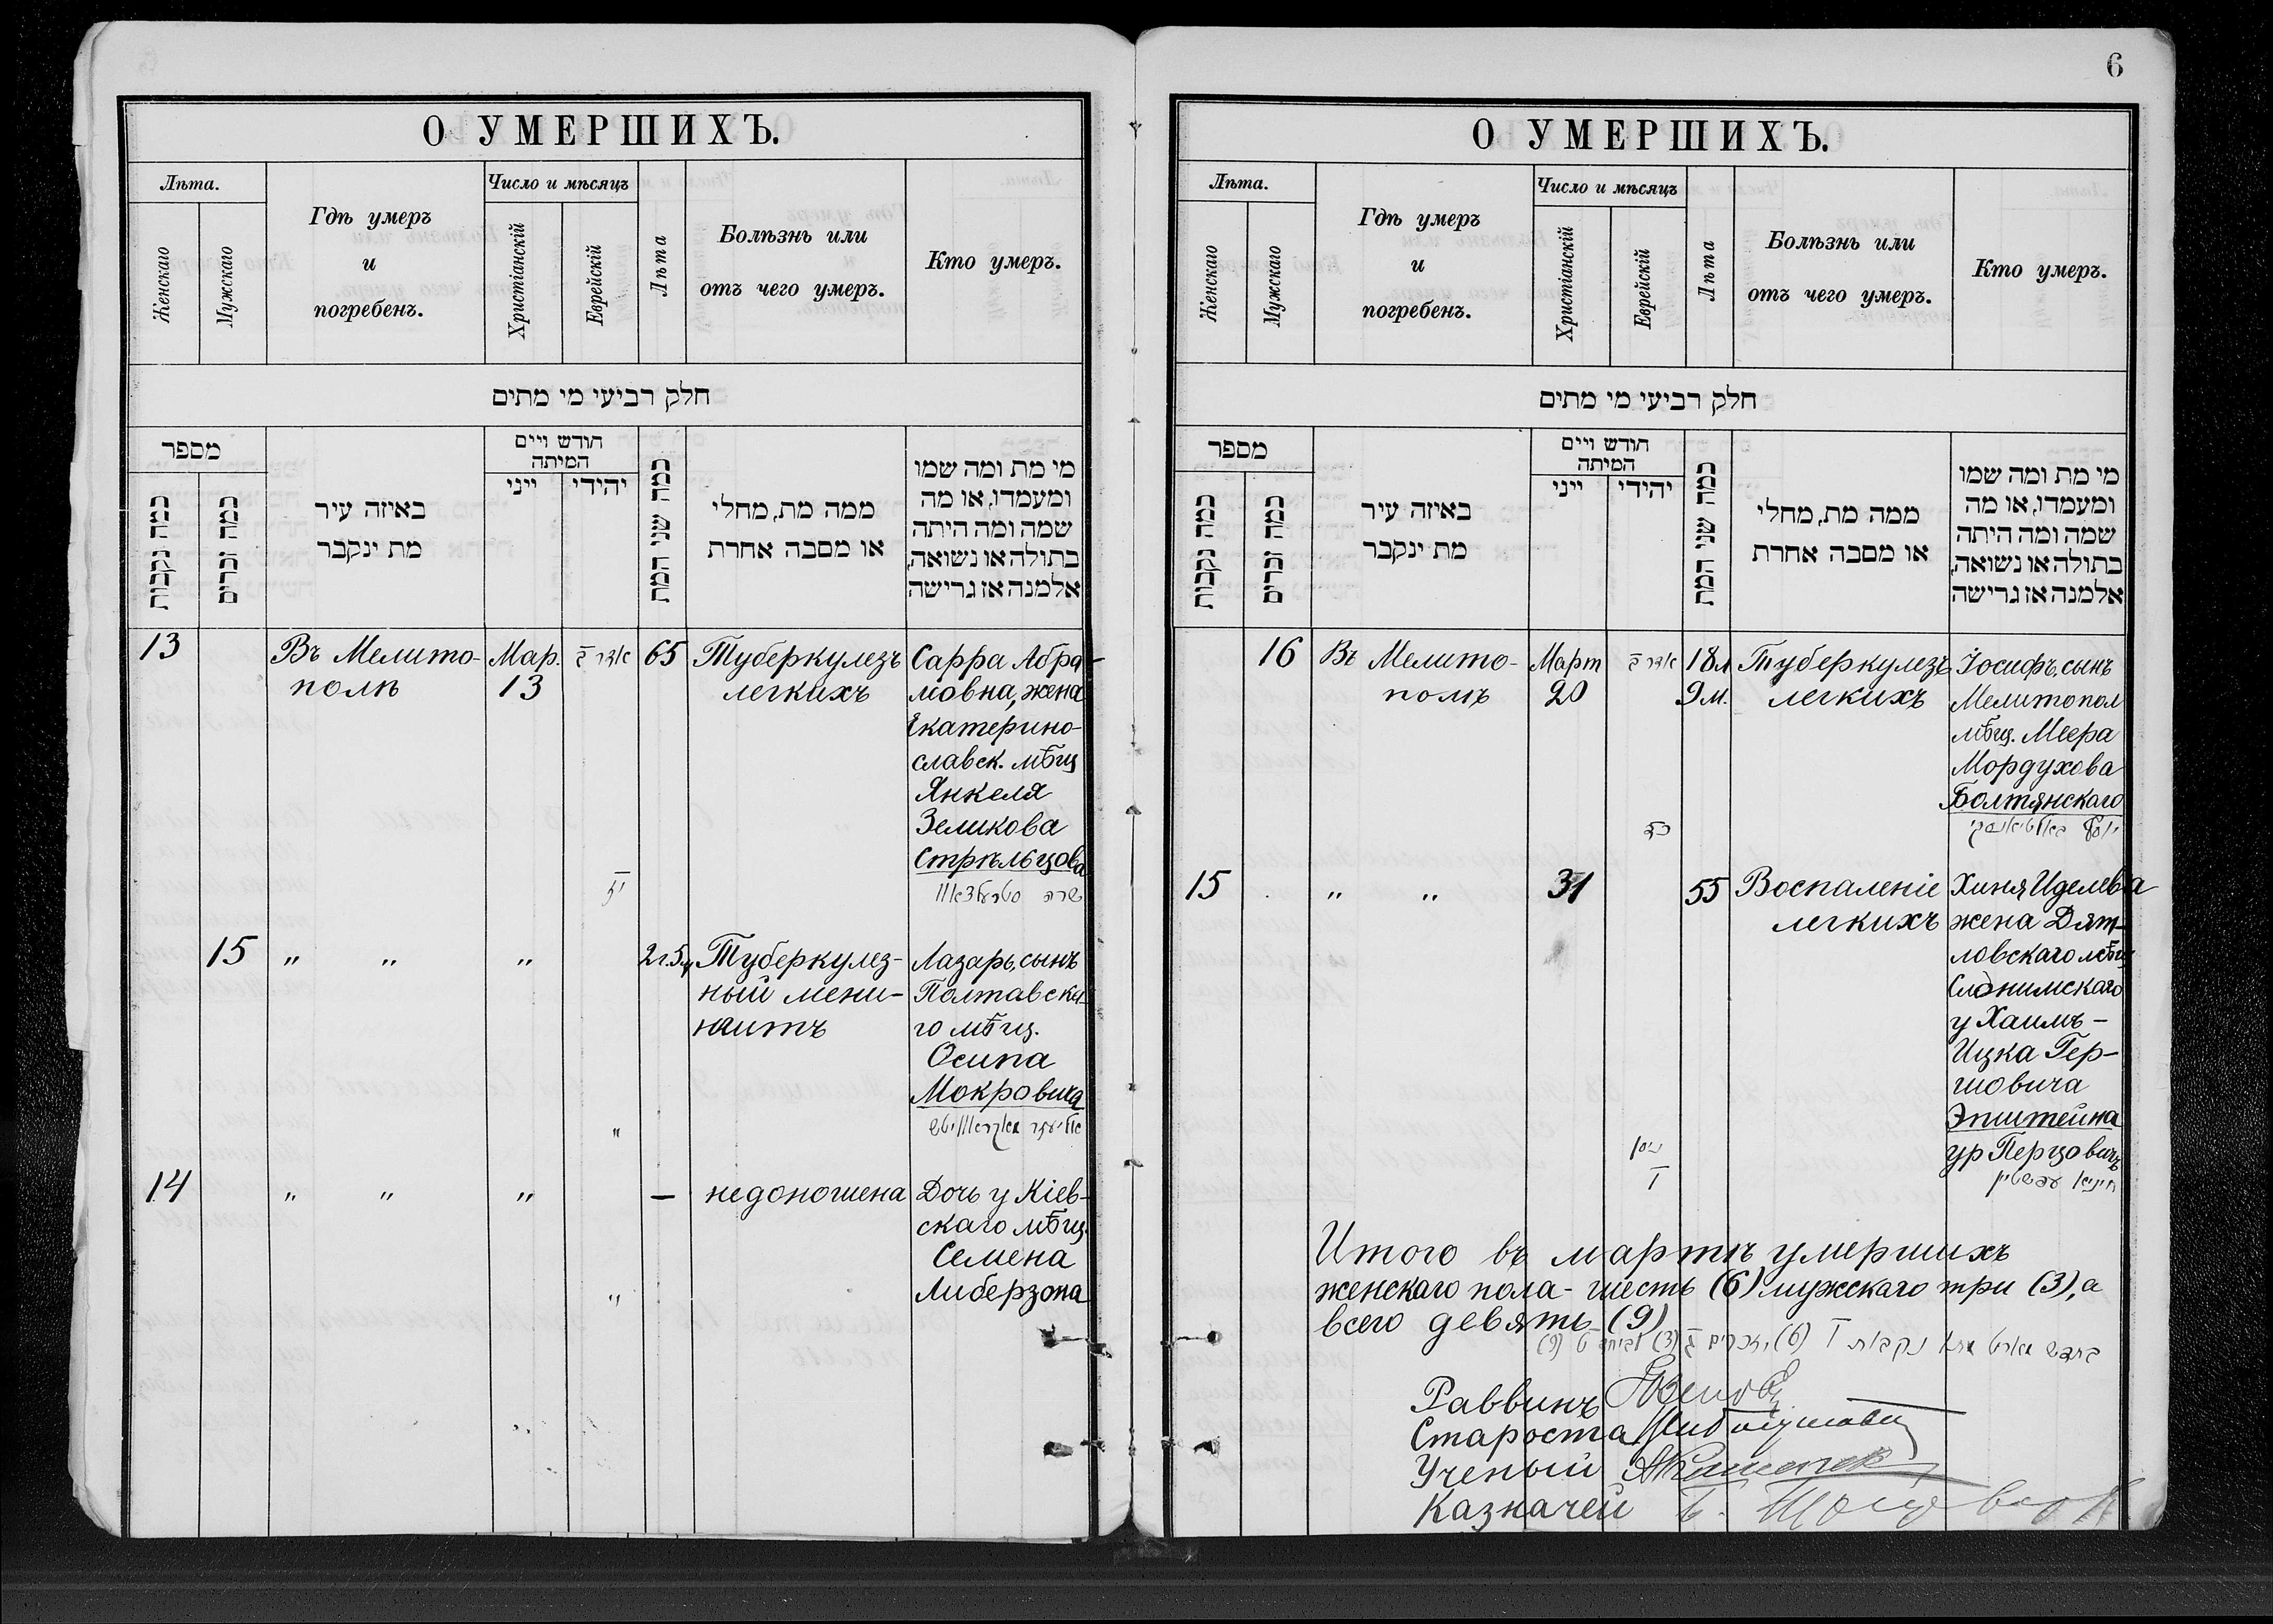 6
О УМЕРШИХЪ.
Лѣта.
Женскаго
Мужскаго
Гдѣ умеръ
и
погребенъ.
Число и мѣсяцъ
Христіанскій
Еврейскій
Лѣта
Болѣзнь или
отъ чего умеръ.
Кто умеръ.
חלק רביעי מי מתים
מספר
כמה נקבות
כמה זכרים
באיזה עיר
מת ינקבר
חודש ויים
המיתה
ייני
יהידי
כמה שני המת
ממה מת, מחלי
או מסבה אחרת
מי מת ומה שמו
ומעמדו, או מה
שמה ומה היתה
בתולה או נשואה,
אלמנה אז גרישה
13
Въ Мелито-
полѣ
Мар.
13
אדר ב
יג
65
Туберкулезъ
легкихъ
Сарра Абра-
мовна, жена
Екатерино-
славск. мѣщ
Янкеля
Зеликова
Стрѣльцова
שרה
15
" "
"
"
2г.5м
Туберкулез-
ный мени-
нгитъ
Лазарь, сынъ
Полтавска-
го мѣщ.
Осипа
Мокровича
14
" "
"
"
—
недоношена
Дочь у Кіев-
скаго мѣщ.
Семена
Либерзона
О УМЕРШИХЪ.
Лѣта.
Женскаго
Мужскаго
Гдѣ умеръ
и
погребенъ.
Число и мѣсяцъ
Христіанскій
Еврейскій
Лѣта
Болѣзнь или
отъ чего умеръ.
Кто умеръ.
חלק רביעי מי מתים
מספר
כמה נקבות
כמה זכרים
באיזה עיר
מת ינקבר
חודש ויים
המיתה
ייני
יהידי
כמה שני המת
ממה מת, מחלי
או מסבה אחרת
מי מת ומה שמו
ומעמדו, או מה
שמה ומה היתה
בתולה או נשואה,
אלמנה אז גרישה
16
Въ Мелито-
полѣ
Март
20
אדר ב
18л
9м.
Туберкулезъ
легкихъ
Іосифъ, сынъ
Мелитопол
мѣщ. Меера
Мордухова
Болтянскаго
15
" "
31
ניסן
55
Воспаленіе
легкихъ
Хиня Иделева
жена Дят-
ловскаго мѣщ
Слонимскаго
у Хаимъ-
Ицка Гер-
шовича
Эпштейна
ур Перцовичъ
Итого въ мартѣ умершихъ
женскаго пола - шесть (6) мужскаго три (3), а
всего девять (9)
Раввинъ
Староста
Ученый
Казначей